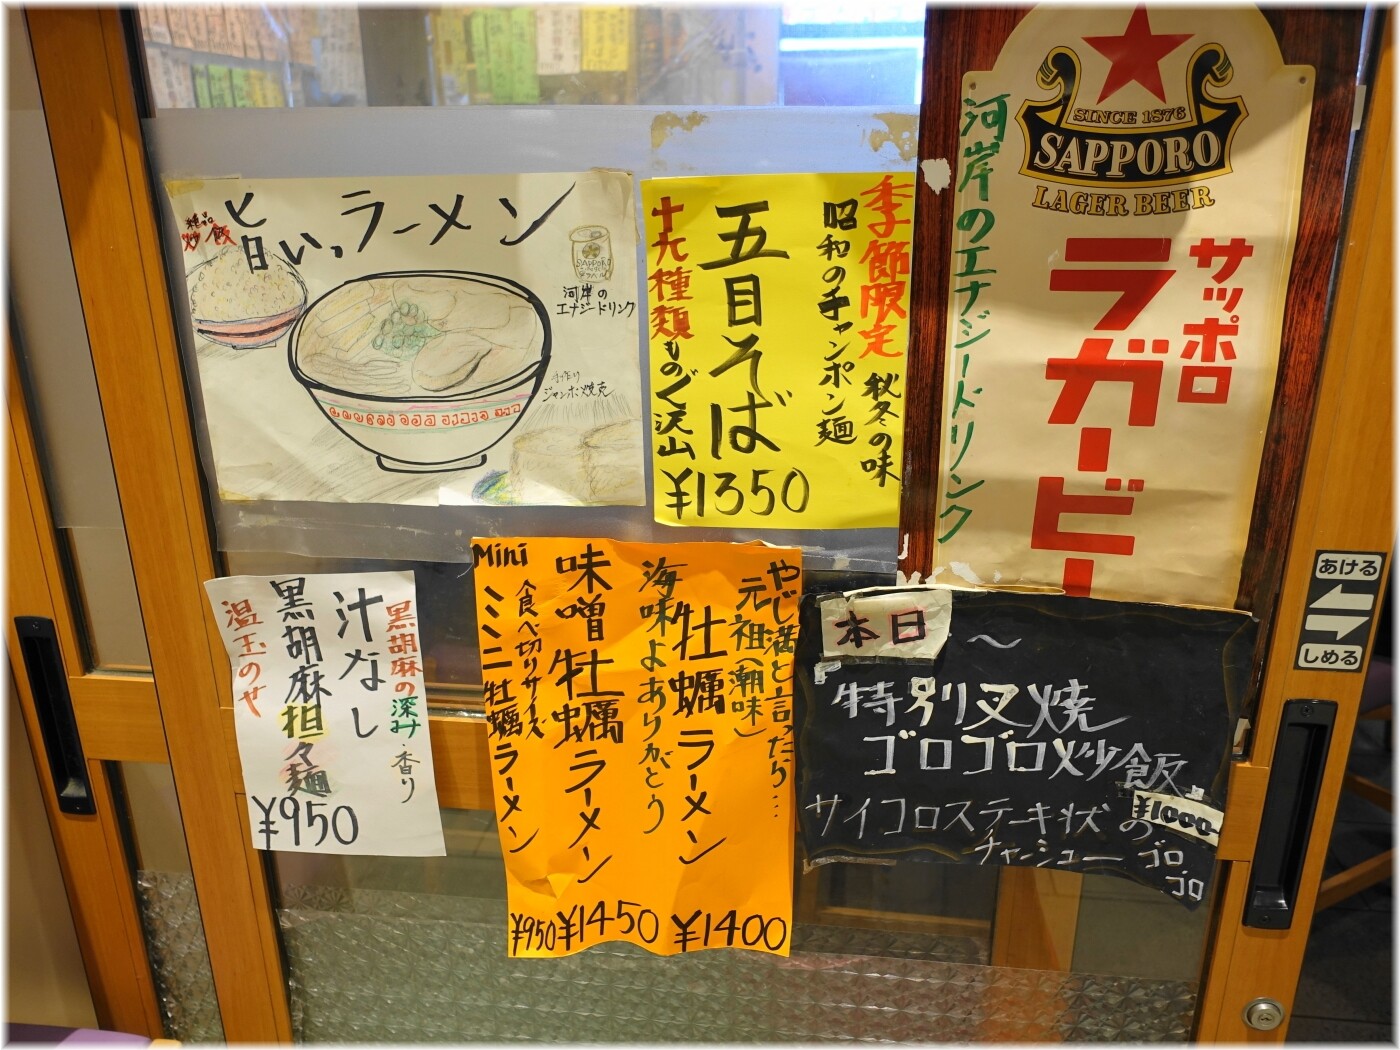 旨いっラーメン
絶品
炒飯
SAPPORO
河岸の
エナジードリンク
手作り
ジャンボ焼売
季節限定 秋冬の味
昭和のチャンポン麺
五目そば
¥1350
十九種類もの具沢山
SINCE 1876
SAPPORO
LAGER BEER
サッポロ
ラガービー
河岸のエナジードリンク
黒胡麻の深み・香り
汁なし
黒胡麻担々麺
温玉のせ
¥950
やじ満と言ったら…
元祖(潮味)
牡蠣ラーメン
¥1400
海味よありがとう
味噌牡蠣ラーメン
¥1450
食べ切りサイズ
Mini
ミニ牡蠣ラーメン
¥950
本日
特別叉焼
ゴロゴロ炒飯
¥1000
サイコロステーキ状の
チャーシュー ゴロ
ゴロ
あける
しめる